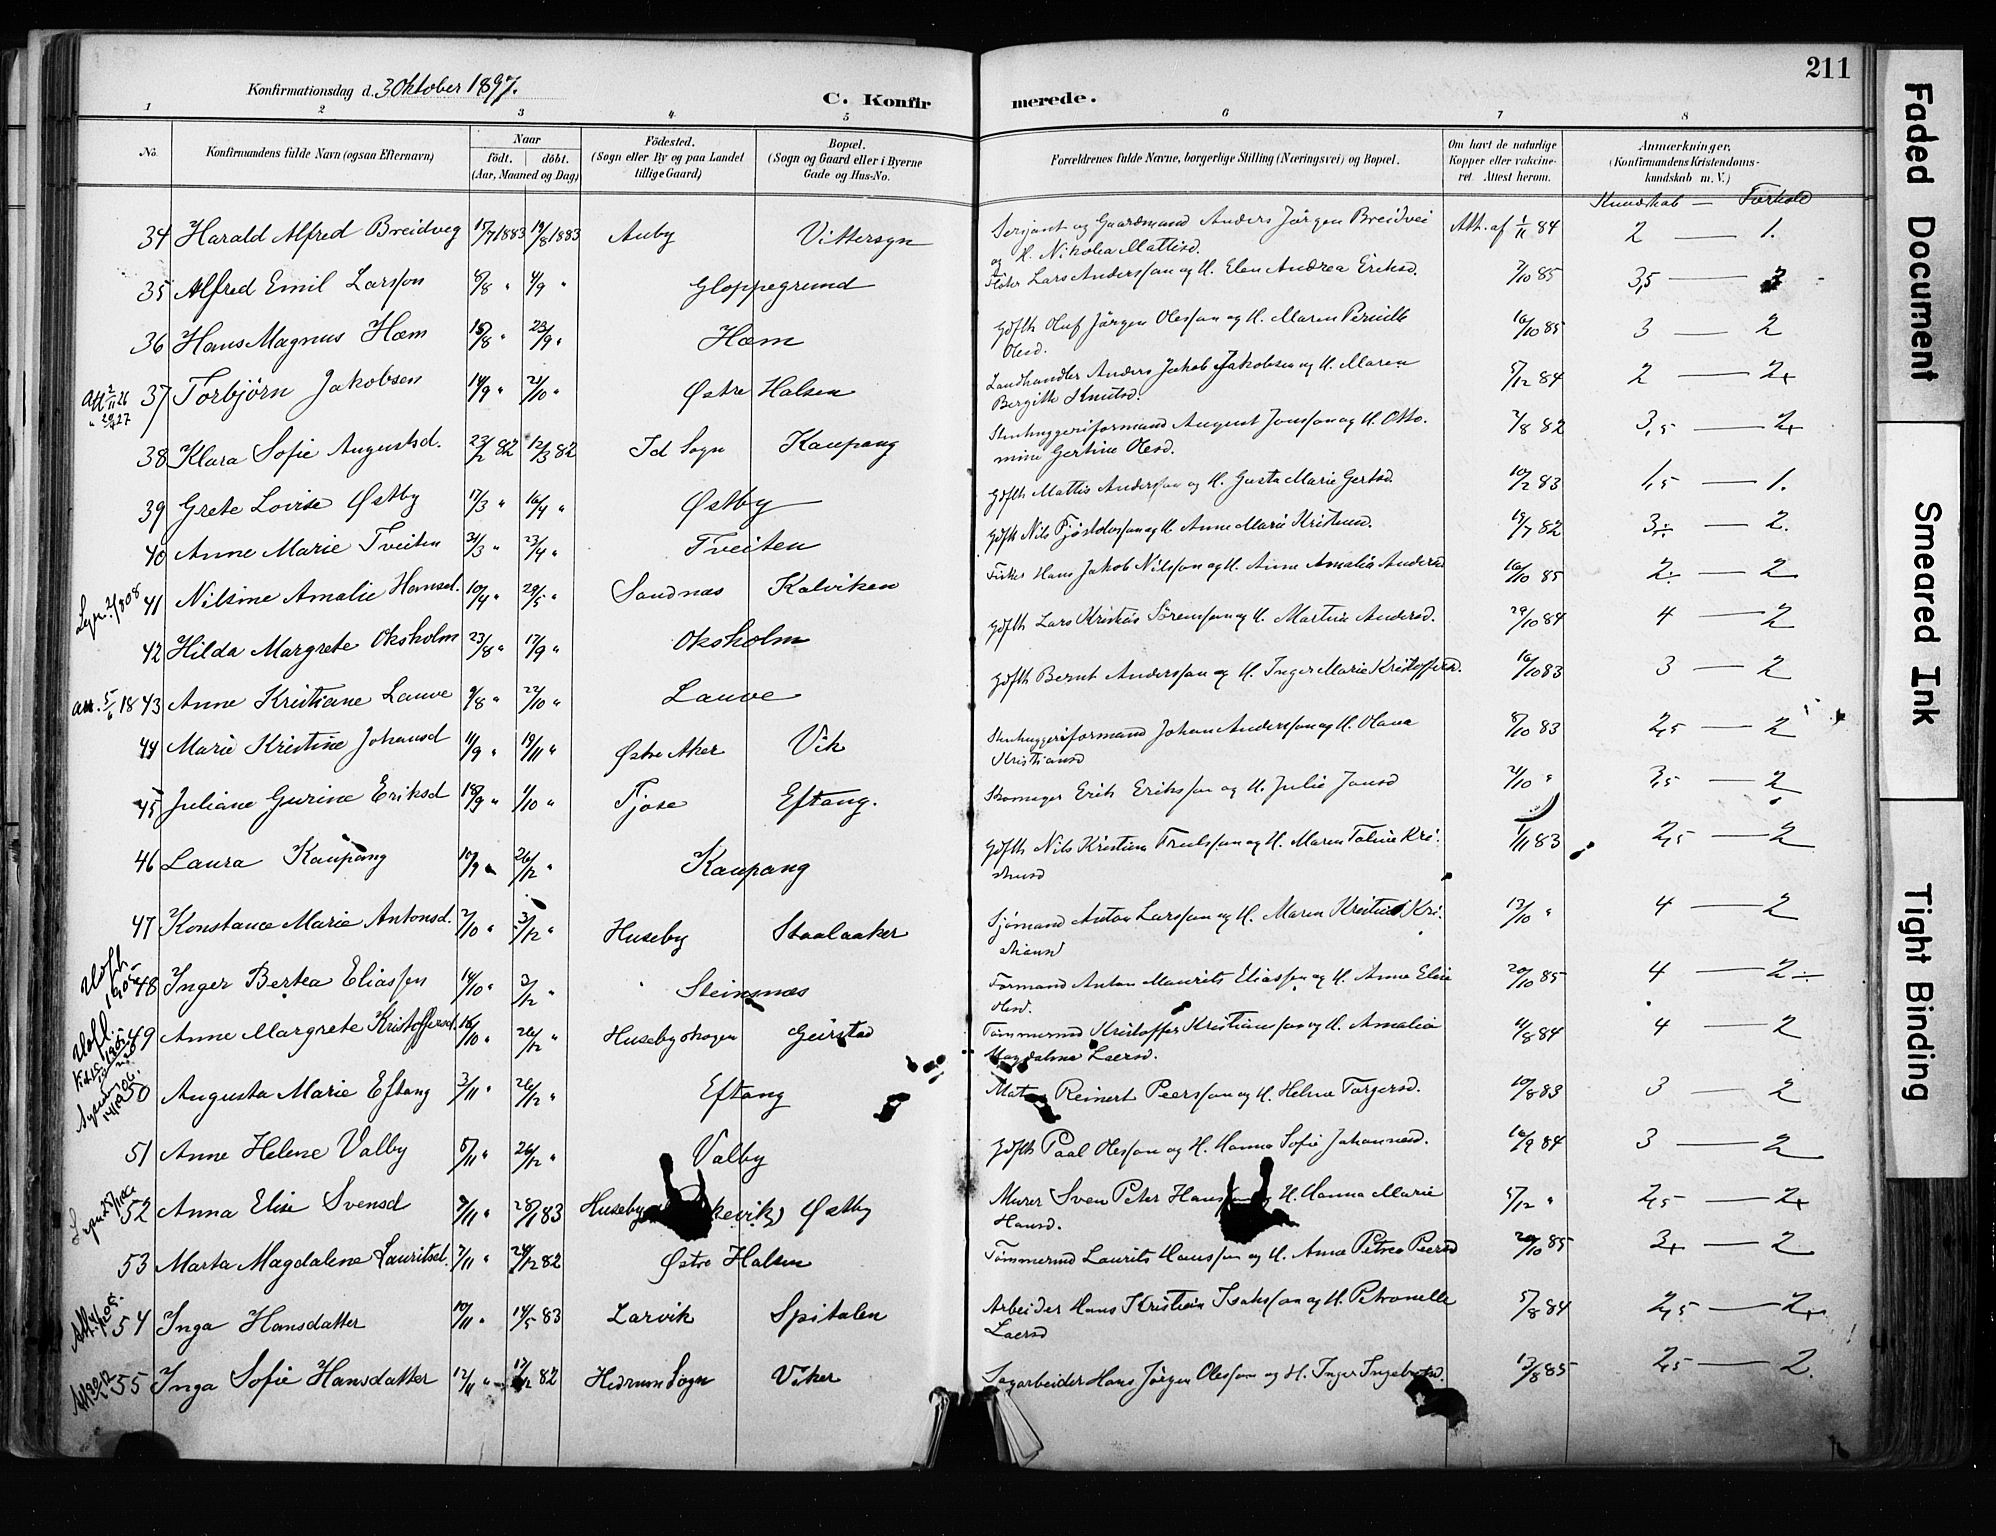 Konfirmationsdag d. 3 Oktober 1897.
C. Konfir
merede.
211
1 2 3 4 5 6 7 8
No.
Konfirmandens fulde Navn (ogsaa Efternavn)
Naar
födt. döbt.
(Aar, Maaned og Dag)
Födested.
(Sogn eller By og paa Landet
tillige Gaard)
Bopæl.
(Sogn og Gaard eller i Byerne
Gade og Hus-No.
Forældrenes fulde Navne, borgerlige Stilling (Næringsvei) og Bopæl.
Om havt de naturlige
Kopper eller vakcine-
ret. Attest herom.
Anmærkninger.
(Konfirmandens Kristendoms-
kundskab m. V.)
Kundskab — Forhold
34 Harald Alfred Breidveg 17/7 1883 19/8 1883 Auby Vittersyn Serjant og Gaardmand Anders Jørgen Breidvei Att. af 1/11 84 2 — 1.
og H. Nikolea Mattisd.
35 Alfred Emil Larsson 8/8 " 4/9 " Gloppegrund Fløter Lars Anderssøn og H. Elen Andrea Eriksd. 7/10 85 3,5 — 3
36 Hans Magnus Ham 15/8 " 23/9 " Ham Gdfth Oluf Jørgen Olessøn og H. Maren Pernille 16/10 85 3 — 2
Olesd.
37 Torbjörn Jakobsen 14/9 " 21/10 " Østre Halsen Landhandler Anders Jakob Jakobsen og H. Maren 5/12 84 2 — 2+
Bergitte Knutsd.
38 Klara Sofie Augustsd. 23/2 82 12/3 82 Id Sogn Kaupang Stenhuggeriformand August Jonssøn og H. Otto- 7/8 82 3,5 — 2+
mine Gertine Olesd.
39 Grete Lovise Østby 17/3 " 16/4 " Østby Gdfth Mattis Anderssøn og H. Gusta Marie Gertsd. 10/2 83 1,5 — 1.
40 Anne Marie Tveiten 21/3 " 23/4 " Tveiten Gdfth Nils Fjøstolvssøn og H. Anne Marie Kristensd. 19/7 82 3÷ — 2.
41 Nilsine Amalie Hansd. 10/4 " 29/5 " Sandnæs Kalviken Fisker Hans Jakob Nilssøn og H. Anne Amalia Andersd 16/10 85 2÷ — 2
42 Hilda Margrete Oksholm 23/8 " 17/9 " Oksholm Gdfth Lars Kristian Sørenssøn og H. Martine Andersd. 29/10 84 4 — 2
43 Anne Kristiane Lauve 9/8 " 22/10 " Lauve Gdfth Bernt Anderssøn og H. Inger Marie Kristoffersd. 16/10 83 3 — 2
44 Marie Kristine Johansd 11/9 " 19/11 " Østre Aker Vik Stenhuggeriformand Johan Anderssøn og H. Olava 8/10 83 2,5 — 2
Kristiansd
45 Juliane Gurine Eriksd 18/9 " 1/10 " Tjøse Eftang. Skomager Erik Erikssøn og H. Julie Jansd 2/10 " 3,5 — 2
46 Laura Kaupang 10/9 " 26/12 " Kaupang Gdfth Nils Kristian Trulssøn og H. Maren Taline Kri- 1/11 83 2,5 — 2
stensd
47 Konstance Marie Antonsd. 2/10 " 3/12 " Huseby Staalaaker Sjømand Anton Larssøn og H. Maren Kristine Kri- 13/10 " 4 — 2
stiansd
48 Inger Bertea Eliassen 14/10 " 3/12 " Steinsnæs Formand Anton Maurits Eliassøn og H. Anna Elise 20/10 85 4 — 2÷
Olesd.
49 Anne Margrete Kristoffersd. 16/10 " 26/12 " Husebyskogen Geirstad Tømmermd Kristoffer Kristianssøn og H. Amalia 4/8 84 4 — 2
Magdalena Laersd.
50 Augusta Marie Eftang 3/11 " 26/12 " Eftang Reinert Peerssøn og H. Helene Torgersd. 10/8 83 3 — 2
51 Anne Helene Valby 5/11 " 26/12 " Valby Gdfth Paal Olessøn og H. Hanna Sofie Johannesd. 16/9 84 3 — 2
52 Anna Elise Svensd 7/11 " 28/1 83 Huseby Østby Murer Sven Peter Hanssøn og H. Hanna Marie 5/12 " 2,5 — 2+
Hansd.
53 Marta Magdalene Lauritsd. 7/11 " 24/12 82 Østre Halsen Tømmermd Laurits Hanssøn og H. Anna Petrea Peersd 20/10 85 3+ — 2
54 Inga Hansdatter 10/11 " 14/5 83 Larvik Spitalen Arbeider Hans Kristian Isakssøn og H. Petronelle 5/8 84 2,5 — 2+
Laersd
55 Inga Sofie Hansdatter 12/11 " 17/12 82 Hedrum Sogn Viker Sagarbeider Hans Jørgen Olessøn og H. Inger Ingebretsd. 13/8 85 2,5 — 2.
Faded Document
Smeared Ink
Tight Binding